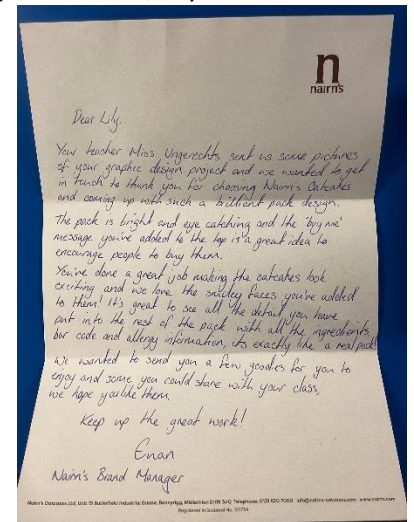 n
nairn's
Dear Lily.
Your teacher Miss Ungerechts sent us some pictures
of your graphic design project and we wanted to get
in touch to thank you for choosing Nairn's Oatcakes
and coming up with such a brilliant pack design.
The pack is bright and eye catching and the 'buy me'
message you've added to the top is a great idea to
encourage people to buy them.
You've done a great job making the oatcakes look
exciting and we love the smiley faces you've added
to them! It's great to see all the detail you have
put into the rest of the pack with all the ingredients,
bar code and allergy information, its exactly like a real pack!
We wanted to send you a few goodies for you to
enjoy and some you could share with your class,
we hope you like them.
Keep up the great work!
Nairn's Brand Manager
Nairn's Oatcakes Ltd, Unit 15 Butlerfield Industrial Estate, Bonnyrigg, Midlothian EH19 3JQ Telephone: 0131 620 7000 www.nairns.com
Registered in Scotland No.